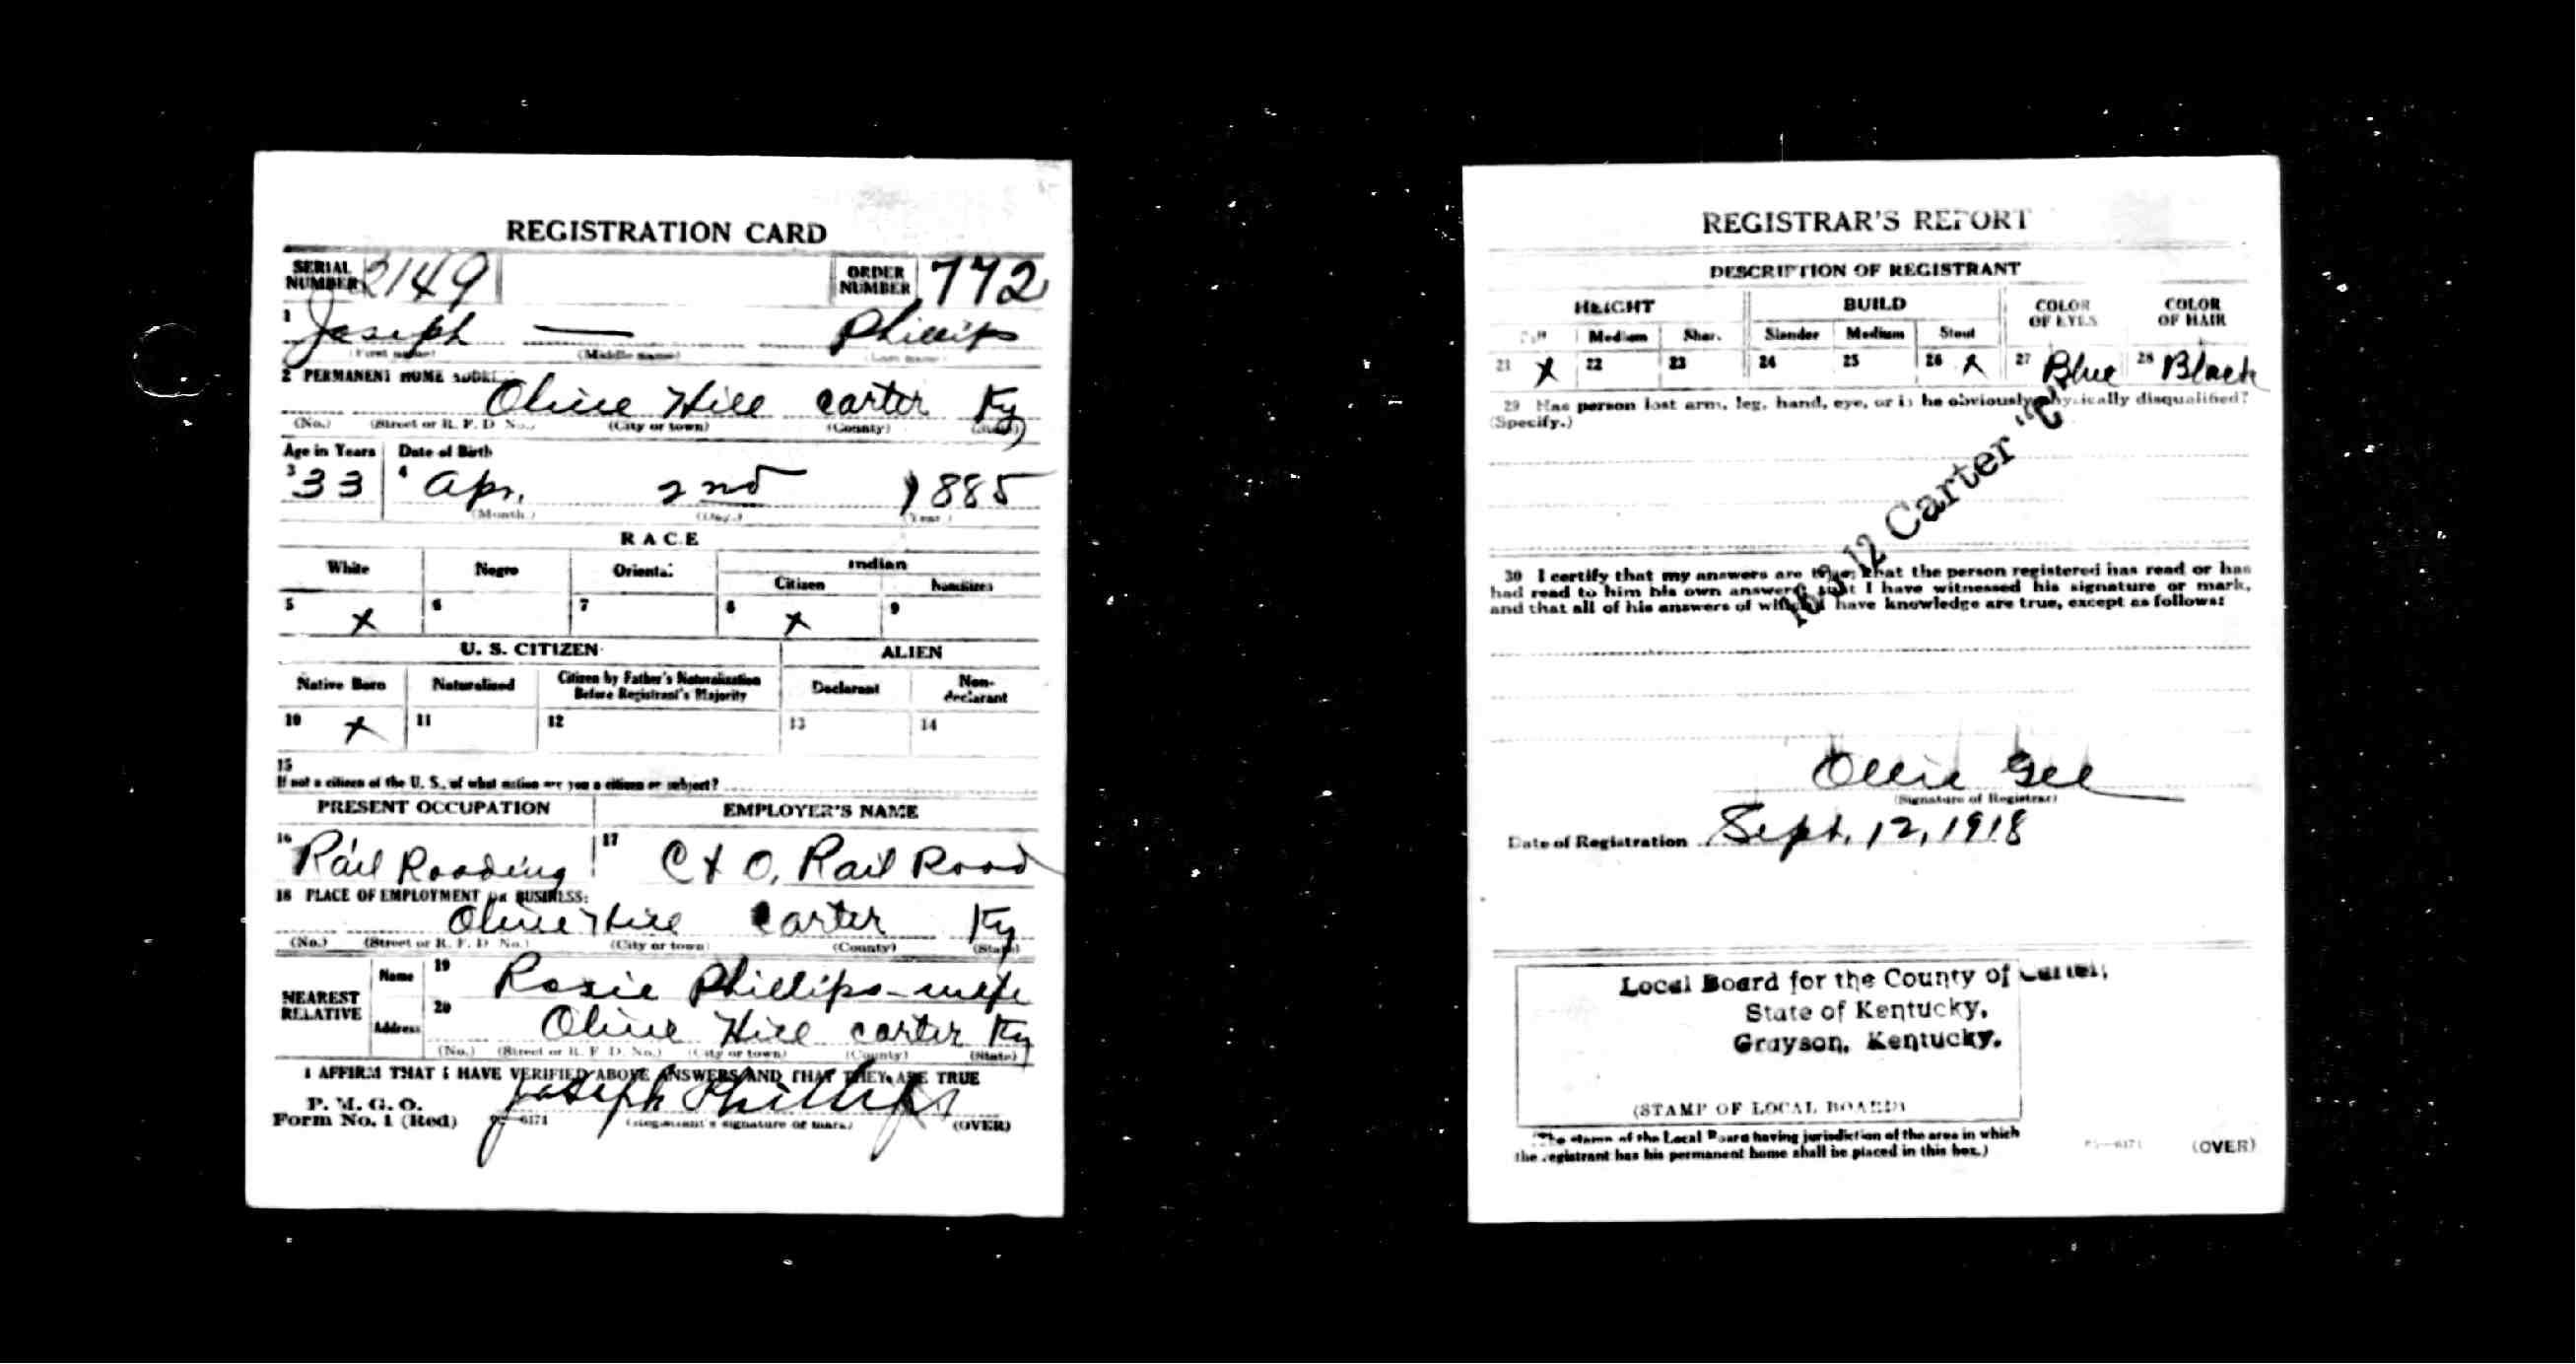 REGISTRATION CARD
SERIAL NUMBER 2149 ORDER NUMBER 772
1 Joseph — Phillips
(First name) (Middle name) (Last name)
2 PERMANENT HOME ADDRESS:
Olive Hill Carter Ky
(No.) (Street or R. F. D. No.) (City or town) (County) (State)
Age in Years Date of Birth
3 33 4 Apr. 2nd 1885
(Month.) (Day.) (Year.)
RACE
White Negro Oriental Indian
Citizen Noncitizen
5 X 6 7 8 X 9
U. S. CITIZEN ALIEN
Native Born Naturalized Citizen by Father's Naturalization Before Registrant's Majority Declarant Non-declarant
10 X 11 12 13 14
15
If not a citizen of the U. S., of what nation are you a citizen or subject?
PRESENT OCCUPATION EMPLOYER'S NAME
16 Rail Roading 17 C & O, Rail Road
18 PLACE OF EMPLOYMENT OR BUSINESS:
Olive Hill Carter Ky
(No.) (Street or R. F. D. No.) (City or town) (County) (State)
NEAREST RELATIVE Name 19 Rosie Phillips - wife
Address 20 Olive Hill Carter Ky
(No.) (Street or R. F. D. No.) (City or town) (County) (State)
I AFFIRM THAT I HAVE VERIFIED ABOVE ANSWERS AND THAT THEY ARE TRUE
P. M. G. O.
Form No. 1 (Red) Joseph Phillips
(Registrant's signature or mark) (OVER)
REGISTRAR'S REPORT
DESCRIPTION OF REGISTRANT
HEIGHT BUILD COLOR OF EYES COLOR OF HAIR
Tall Medium Short Slender Medium Stout
21 X 22 23 24 25 26 X 27 Blue 28 Black
29 Has person lost arm, leg, hand, eye, or is he obviously physically disqualified?
(Specify.)
16 3 12 Carter "C"
30 I certify that my answers are true; that the person registered has read or has
had read to him his own answers; that I have witnessed his signature or mark,
and that all of his answers of which I have knowledge are true, except as follows:
Ollie Gee
(Signature of Registrar)
Date of Registration Sept. 12, 1918
Local Board for the County of Carter,
State of Kentucky,
Grayson, Kentucky.
(STAMP OF LOCAL BOARD)
(The stamp of the Local Board having jurisdiction of the area in which
the registrant has his permanent home shall be placed in this box.)
(OVER)